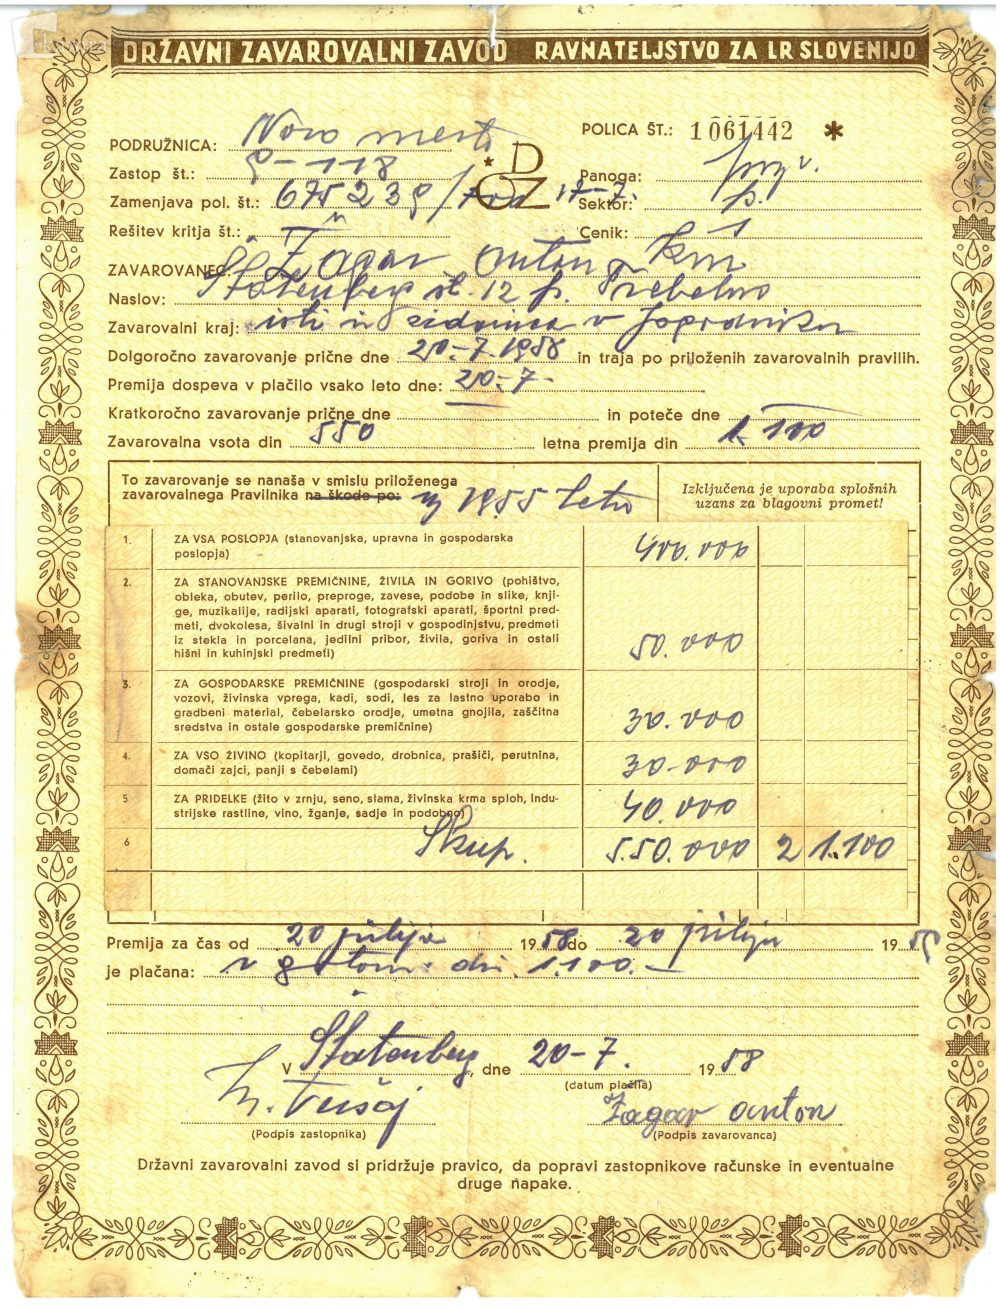 DRŽAVNI ZAVAROVALNI ZAVOD RAVNATELJSTVO ZA LR SLOVENIJO
POLICA ŠT.: 1061442 *
PODRUŽNICA: Novo mesto
Zastop št.: 9-118
DOZ
Panoga:
Zamenjava pol. št.: 675239/
Sektor: p.
Rešitev kritja št.:
Cenik: 1
ZAVAROVANEC: Žagar Anton km
Naslov: Štatenberg št. 12 p. Trebelno
Zavarovalni kraj: isti in zidanica v
Dolgoročno zavarovanje prične dne 20-7-1958 in traja po priloženih zavarovalnih pravilih.
Premija dospeva v plačilo vsako leto dne: 20-7-
Kratkoročno zavarovanje prične dne in poteče dne
Zavarovalna vsota din 550 letna premija din 1.100
To zavarovanje se nanaša v smislu priloženega
zavarovalnega Pravilnika na škode po: iz 1955 leta
Izključena je uporaba splošnih
uzans za blagovni promet!
1. ZA VSA POSLOPJA (stanovanjska, upravna in gospodarska
poslopja) 400.000
2. ZA STANOVANJSKE PREMIČNINE, ŽIVILA IN GORIVO (pohištvo,
obleka, obutev, perilo, preproge, zavese, podobe in slike, knji-
ge, muzikalije, radijski aparati, fotografski aparati, športni pred-
meti, dvokolesa, šivalni in drugi stroji v gospodinjstvu, predmeti
iz stekla in porcelana, jedilni pribor, živila, goriva in ostali
hišni in kuhinjski predmeti) 50.000
3. ZA GOSPODARSKE PREMIČNINE (gospodarski stroji in orodje,
vozovi, živinska vprega, kadi, sodi, les za lastno uporabo in
gradbeni material, čebelarsko orodje, umetna gnojila, zaščitna
sredstva in ostale gospodarske premičnine) 30.000
4. ZA VSO ŽIVINO (kopitarji, govedo, drobnica, prašiči, perutnina,
domači zajci, panji s čebelami) 30.000
5 ZA PRIDELKE (žito v zrnju, seno, slama, živinska krma sploh, indu-
strijske rastline, vino, žganje, sadje in podobno) 40.000
6 Skup. 550.000 2 1.100
Premija za čas od 20 julija 1958 do 20 julija 1959
je plačana: v gotov: din 1.100.-
V Štatenberg, dne 20-7. 1958
(datum plačila)
Žagar Anton
(Podpis zastopnika) (Podpis zavarovanca)
Državni zavarovalni zavod si pridržuje pravico, da popravi zastopnikove računske in eventualne
druge napake.